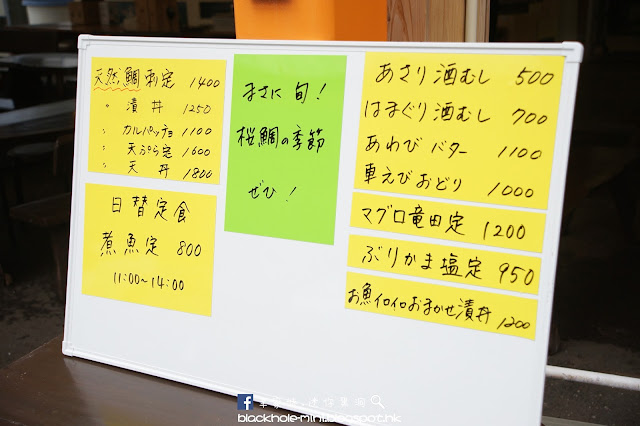 天然鯛 刺定 1400
〃 漬丼 1250
〃 カルパッチョ 1100
〃 天ぷら定 1600
〃 天丼 1800
日替定食
煮魚定 800
11:00~14:00
まさに 旬!
桜鯛の季節
ぜひ!
あさり酒むし 500
はまぐり酒むし 700
あわびバター 1100
車えびおどり 1000
マグロ竜田定 1200
ぶりかま塩定 950
お魚イロイロおまかせ漬丼 1200
blackhole-mini.blogspot.hk